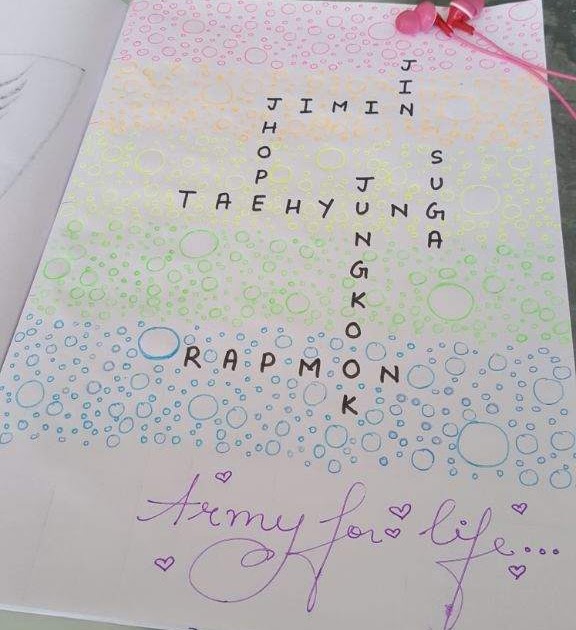 JIN
JIMIN
JHOPE
SUGA
TAEHYUNG
JUNGKOOK
RAPMON
Army for life...